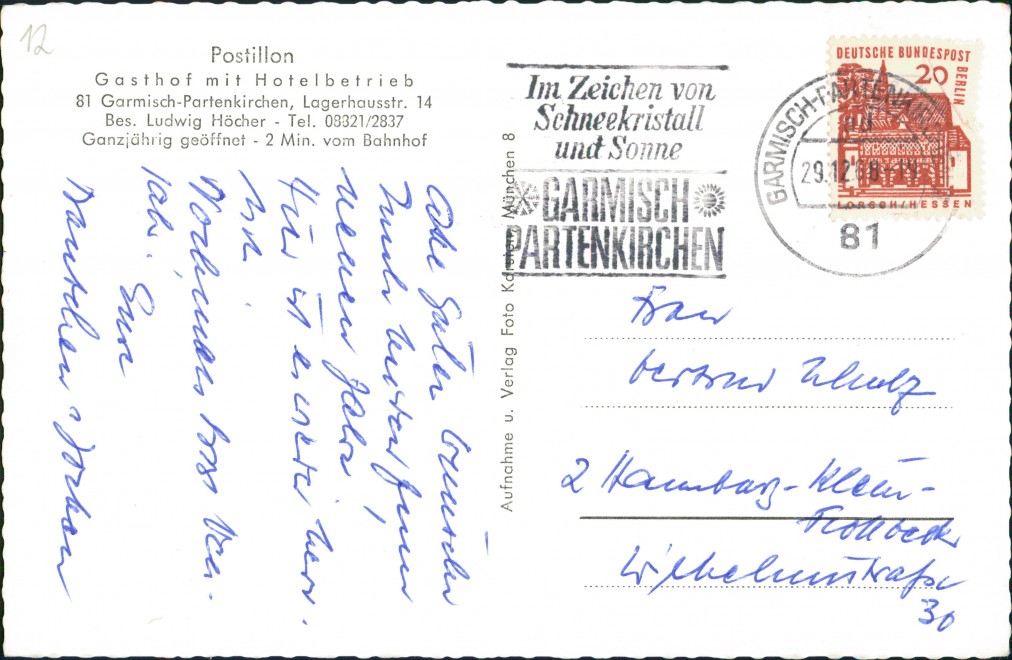 12
Postillon
Gasthof mit Hotelbetrieb
81 Garmisch-Partenkirchen, Lagerhausstr. 14
Bes. Ludwig Höcher - Tel. 08821/2837
Ganzjährig geöffnet - 2 Min. vom Bahnhof
Im Zeichen von
Schneekristall
und Sonne
GARMISCH
PARTENKIRCHEN
GARMISCH-PARTENKIRCHEN
29.12.68-19
81
DEUTSCHE BUNDESPOST
BERLIN
20
LORSCH/HESSEN
Alle guten Wünsche
zum
neuen Jahr
Hier ist es wieder herr-
lich
Eure
Aufnahme u. Verlag Foto Karsten, München 8
Frau
Gertrud Schulz
2 Hamburg-Klein-
Flottbeck
Wilhelmstraße
30